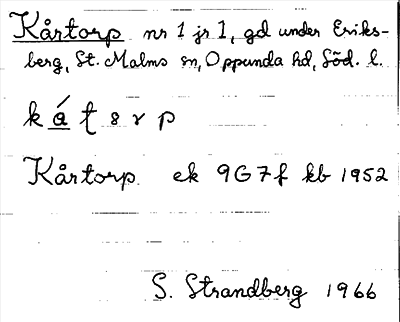 Kårtorp nr 1 jr 1, gd under Eriks-
berg, St. Malms sn, Oppunda hd, Söd. l.
k á ƭ s r p
Kårtorp ek 9G7f kb 1952
S. Strandberg 1966